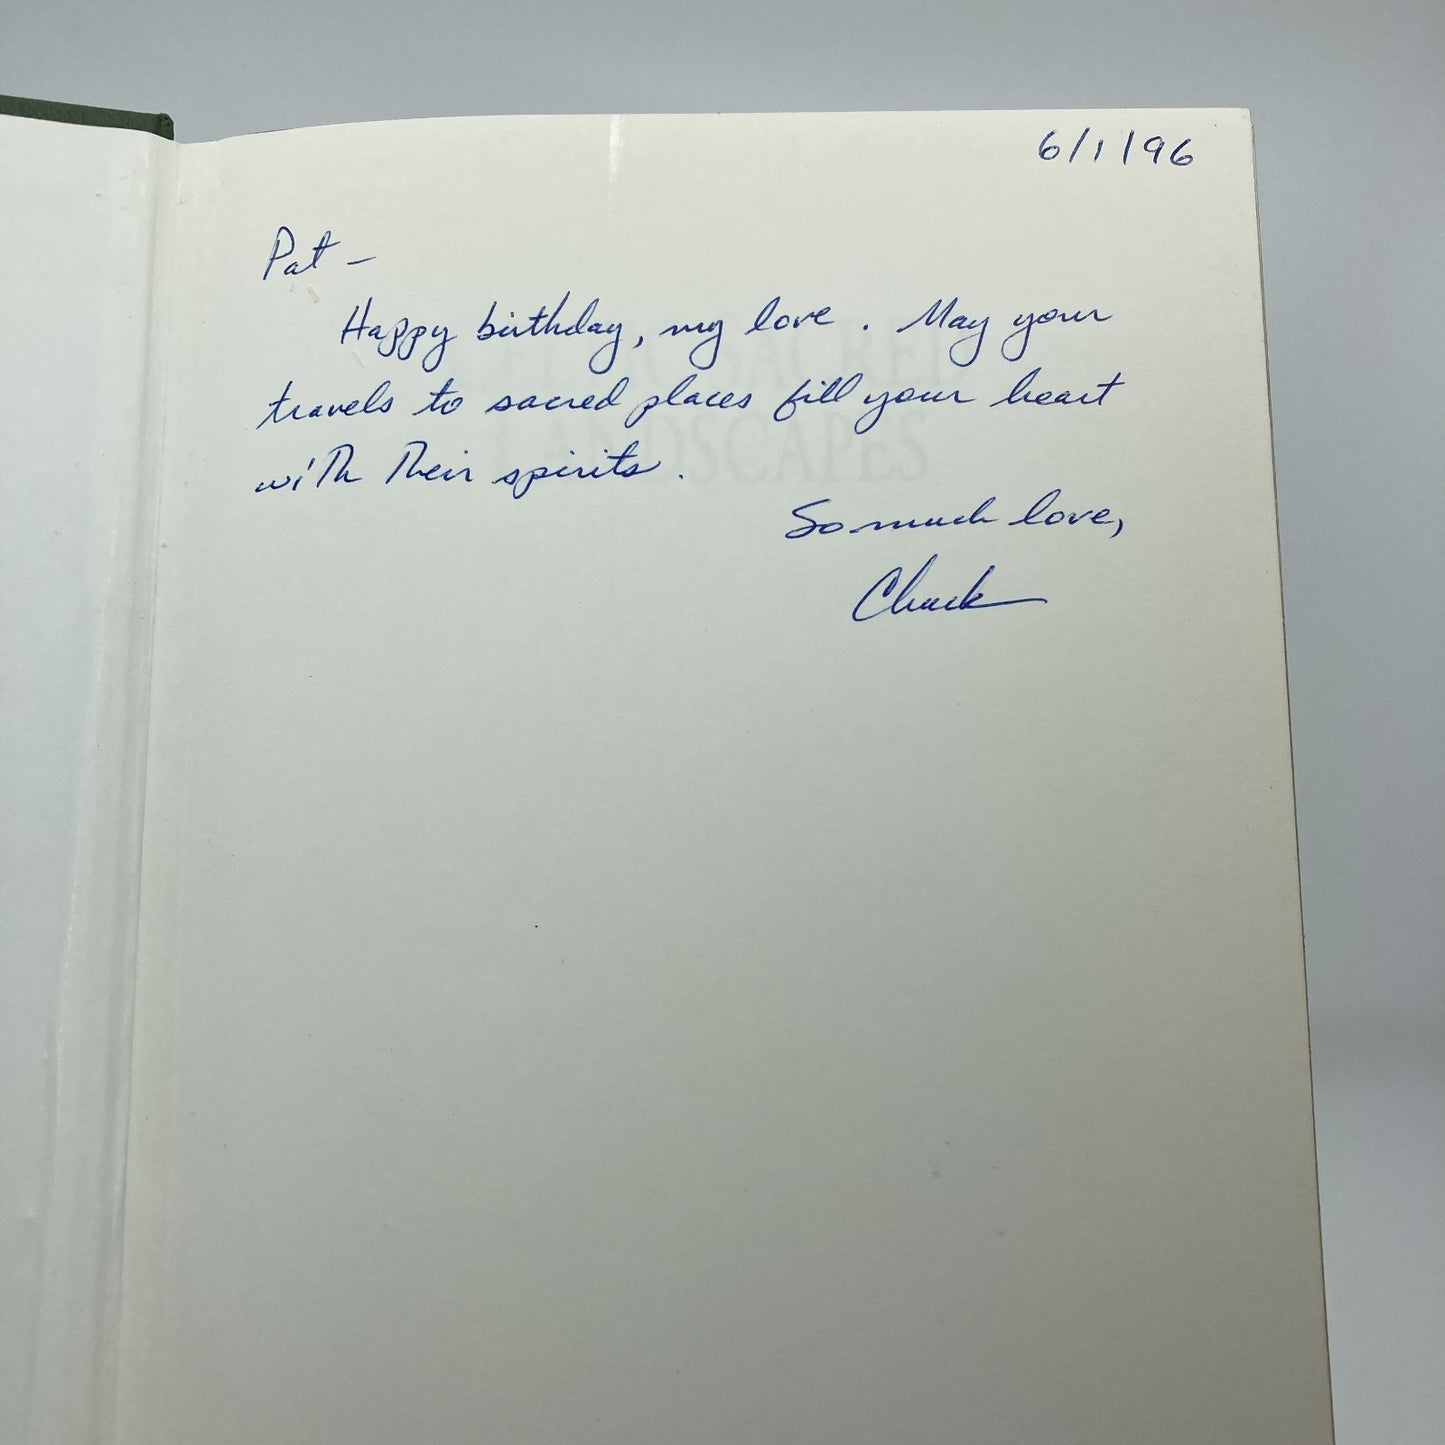 6/1/96
Pat –
Happy birthday, my love. May your
travels to sacred places fill your heart
with their spirits.
So much love,
Chuck
SACRED
LANDSCAPES